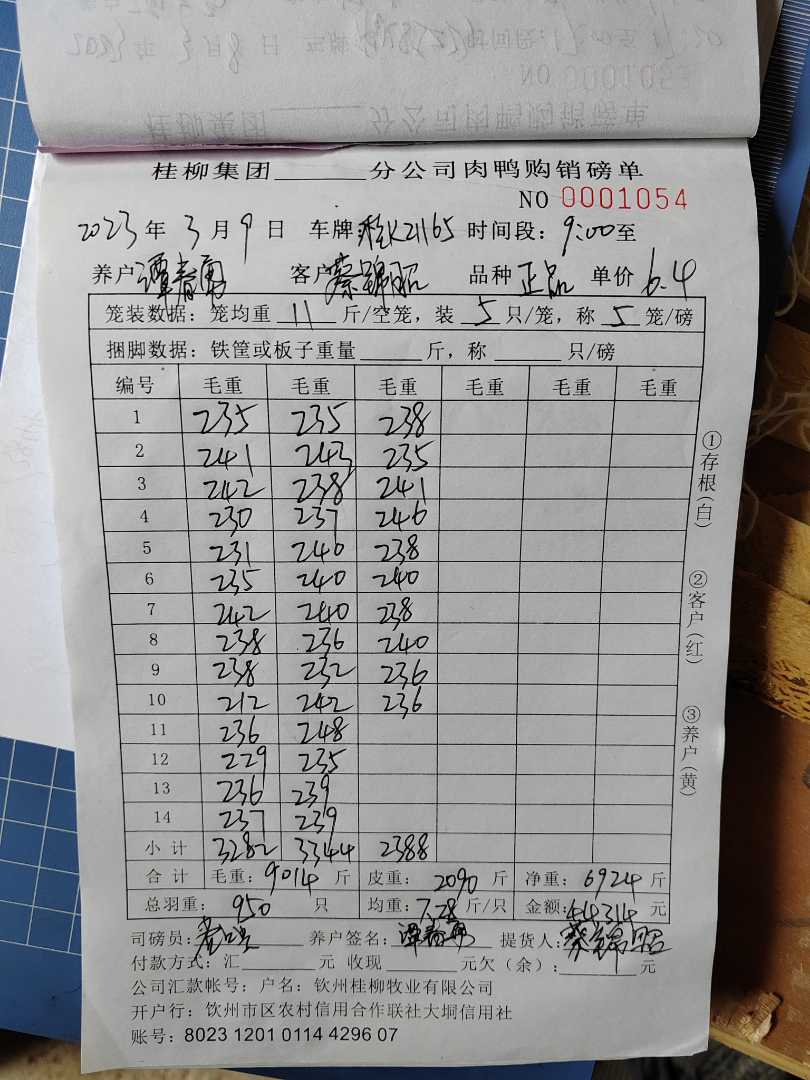 桂柳集团______分公司肉鸭购销磅单
NO 0001054
2023年 3月 9日 车牌:桂K21165 时间段:9:00至
养户 谭春勇 客户 蔡锦昭 品种 正品 单价 6.4
笼装数据:笼均重 11 斤/空笼,装 5 只/笼,称 5 笼/磅
捆脚数据:铁筐或板子重量______斤,称______只/磅
编号 毛重 毛重 毛重 毛重 毛重 毛重
1 235 235 238
2 241 243 235
3 242 238 241
4 230 237 246
5 231 240 238
6 235 240 240
7 242 240 238
8 238 236 240
9 238 232 236
10 212 242 236
11 236 248
12 229 235
13 236 239
14 237 239
小计 3282 3344 2388
合计 毛重:9014斤 皮重:2090斤 净重:6924斤
总羽重:950只 均重:7.28斤/只 金额:44314元
司磅员: 养户签名:谭春勇 提货人:蔡锦昭
付款方式:汇______元 收现______元欠(余):______元
公司汇款帐号:户名:钦州桂柳牧业有限公司
开户行:钦州市区农村信用合作联社大垌信用社
账号:8023 1201 0114 4296 07
①存根(白)
②客户(红)
③养户(黄)